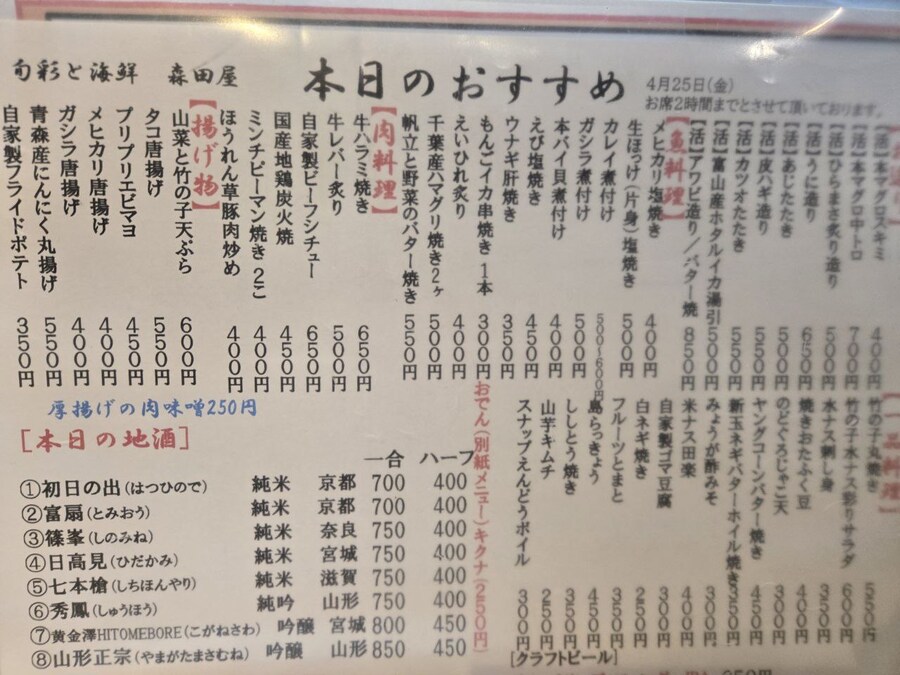 旬彩と海鮮 森田屋
本日のおすすめ
4月25日(金)
お席2時間までとさせて頂いております。
【活】本マグロスキミ 400円
【活】本マグロ中トロ 700円
【活】ひらまさ炙り造り 500円
【活】うに造り 650円
【活】あじたたき 500円
【活】皮ハギ造り 550円
【活】カツオたたき 550円
【活】富山産ホタルイカ湯引 500円
【活】アワビ造り／バター焼 850円
【魚料理】
メヒカリ塩焼き 400円
生ほっけ(片身)塩焼き 500円
カレイ煮付け 500～600円
ガシラ煮付け 500円
本バイ貝煮付け 400円
えび塩焼き 450円
ウナギ肝焼き 350円
もんごイカ串焼き1本 300円
えいひれ炙り 400円
千葉産ハマグリ焼き2ヶ 500円
帆立と野菜のバター焼き 550円
【肉料理】
牛ハラミ焼き 650円
牛レバー炙り 500円
自家製ビーフシチュー 650円
国産地鶏炭火焼 450円
ミンチピーマン焼き2こ 400円
ほうれん草豚肉炒め 400円
【揚げ物】
山菜と竹の子天ぷら 600円
タコ唐揚げ 550円
プリプリエビマヨ 450円
メヒカリ唐揚げ 400円
ガシラ唐揚げ 400円
青森産にんにく丸揚げ 500円
自家製フライドポテト 350円
厚揚げの肉味噌250円
【一品料理】
竹の子丸焼き 550円
竹の子水ナス彩りサラダ 600円
水ナス刺し身 350円
焼きおたふく豆 400円
のどぐろじゃこ天 450円
ヤングコーンバター焼き 400円
新玉ネギバターホイル焼き 350円
みょうが酢みそ 300円
米ナス田楽 400円
自家製ゴマ豆腐 300円
白ネギ焼き 250円
フルーツとまと 350円
島らっきょう 450円
ししとう焼き 350円
山芋キムチ 250円
スナップえんどうボイル 300円
おでん(別紙メニュー)キクナ(250円)
[本日の地酒]
一合 ハーフ
①初日の出(はつひので) 純米 京都 700 400
②富扇(とみおう) 純米 京都 700 400
③篠峯(しのみね) 純米 奈良 750 400
④日高見(ひだかみ) 純米 宮城 750 400
⑤七本槍(しちほんやり) 純米 滋賀 750 400
⑥秀鳳(しゅうほう) 純吟 山形 750 400
⑦黄金澤HITOMEBORE(こがねさわ) 吟醸 宮城 800 450
⑧山形正宗(やまがたまさむね) 吟醸 山形 850 450
[クラフトビール]